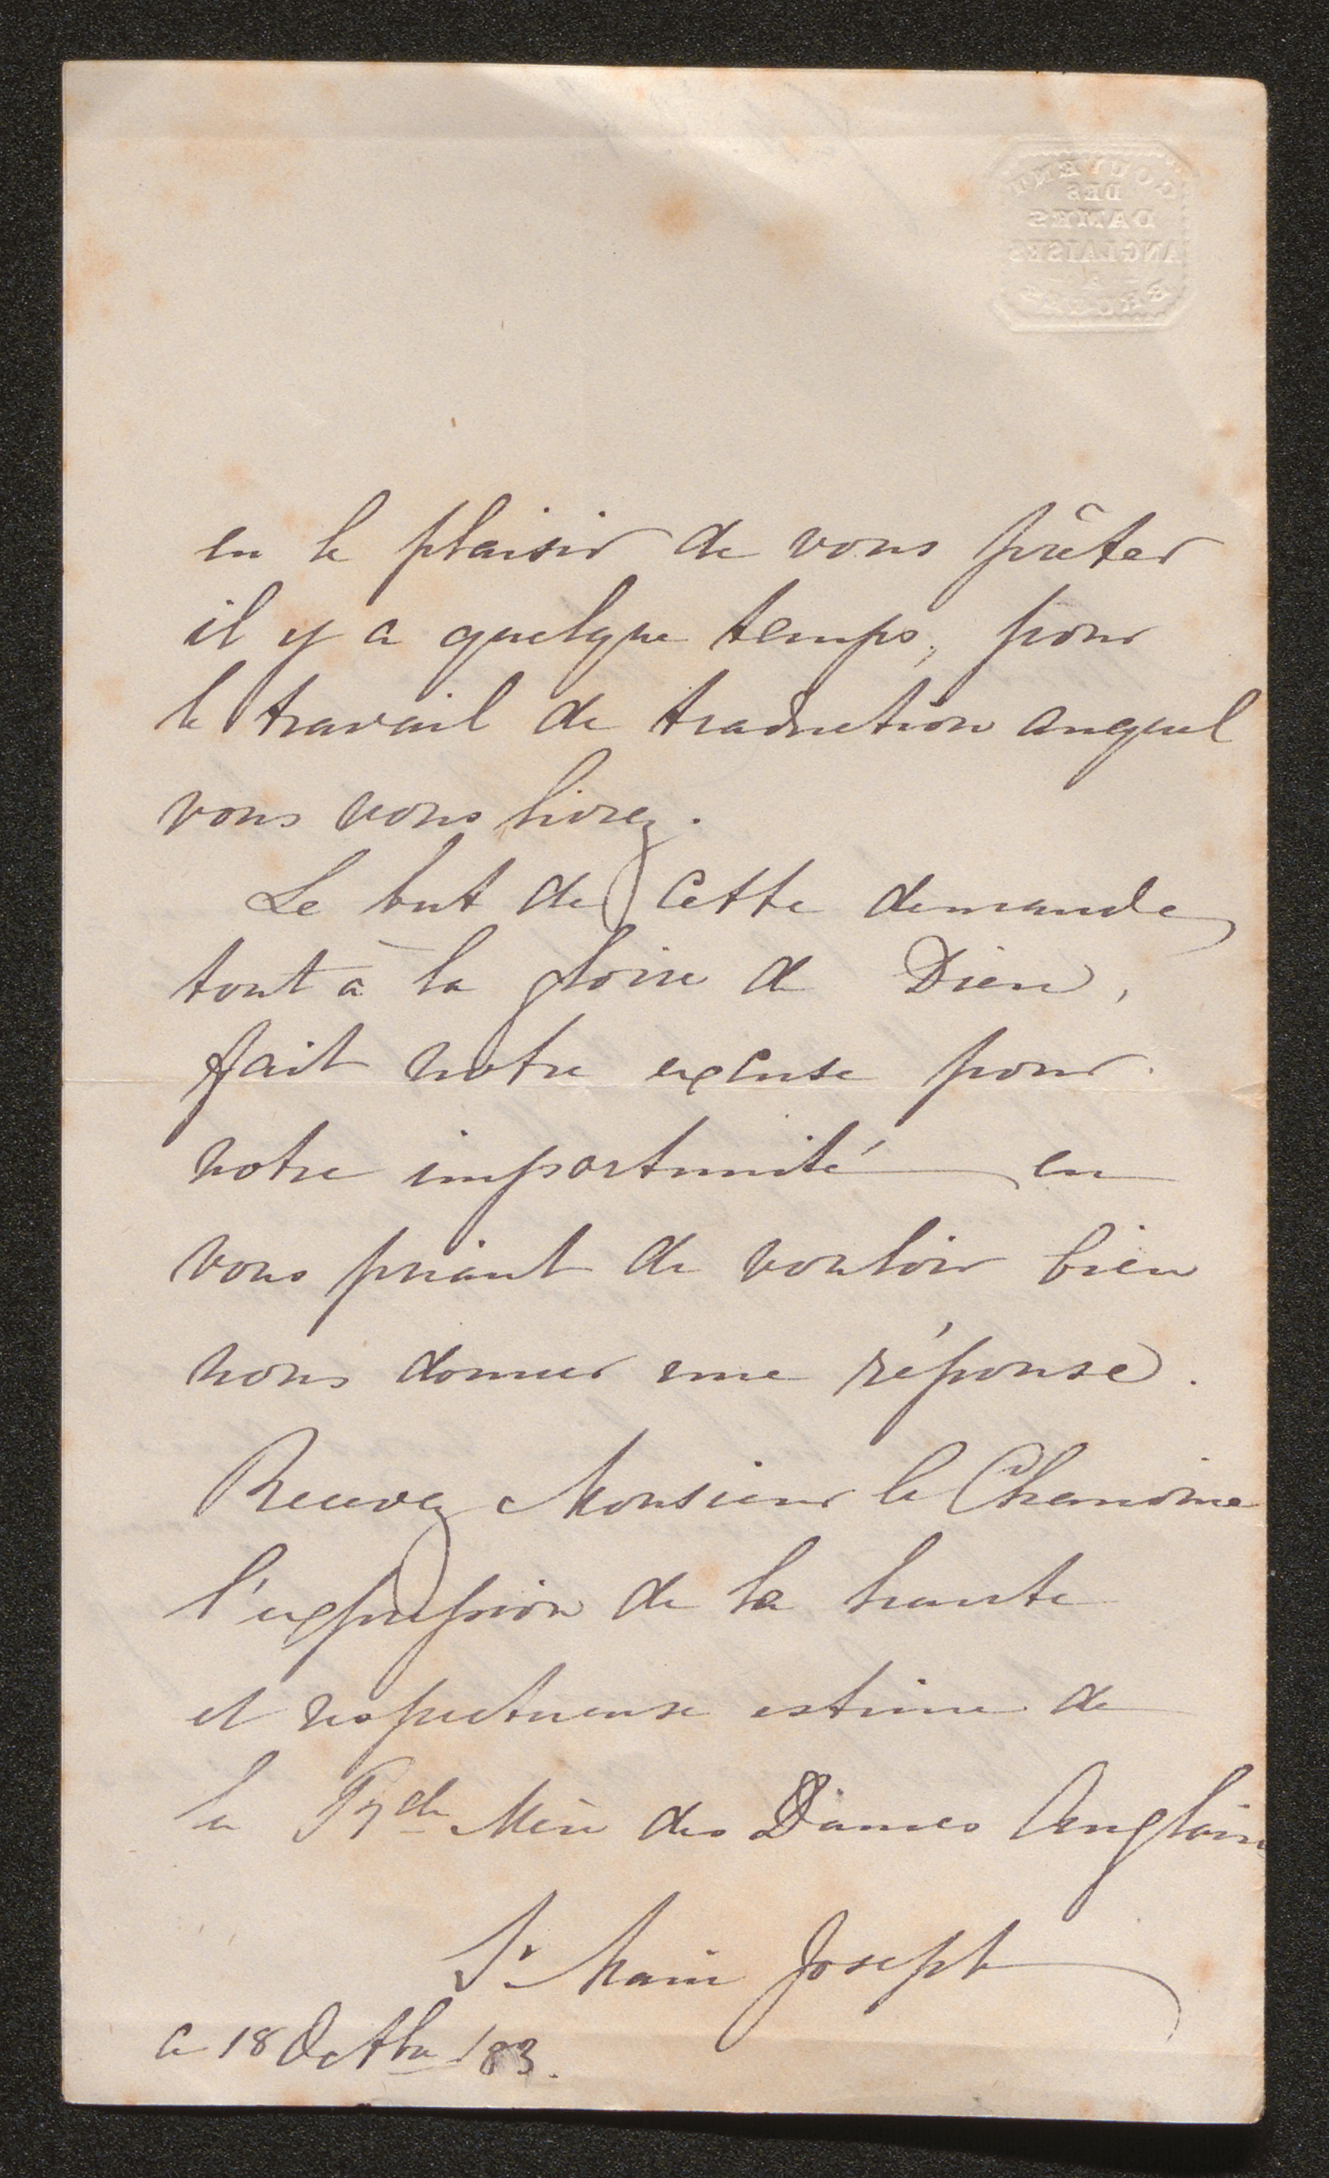 COUVENT
DES
DAMES
ANGLAISES
BRUGES
eu le plaisir de vous prêter
il y a quelque temps, pour
le travail de traduction auquel
vous vous livrez.
Le but de cette demande
tout à la gloire de Dieu,
fait notre excuse pour
notre importunité en
vous priant de vouloir bien
nous donner une réponse.
Recevez Monsieur le Chanoine
l'expression de la haute
et respectueuse estime de
la Rde Mère des Dames Anglaises
Sr Marie Joseph
ce 18 Octbre /83.